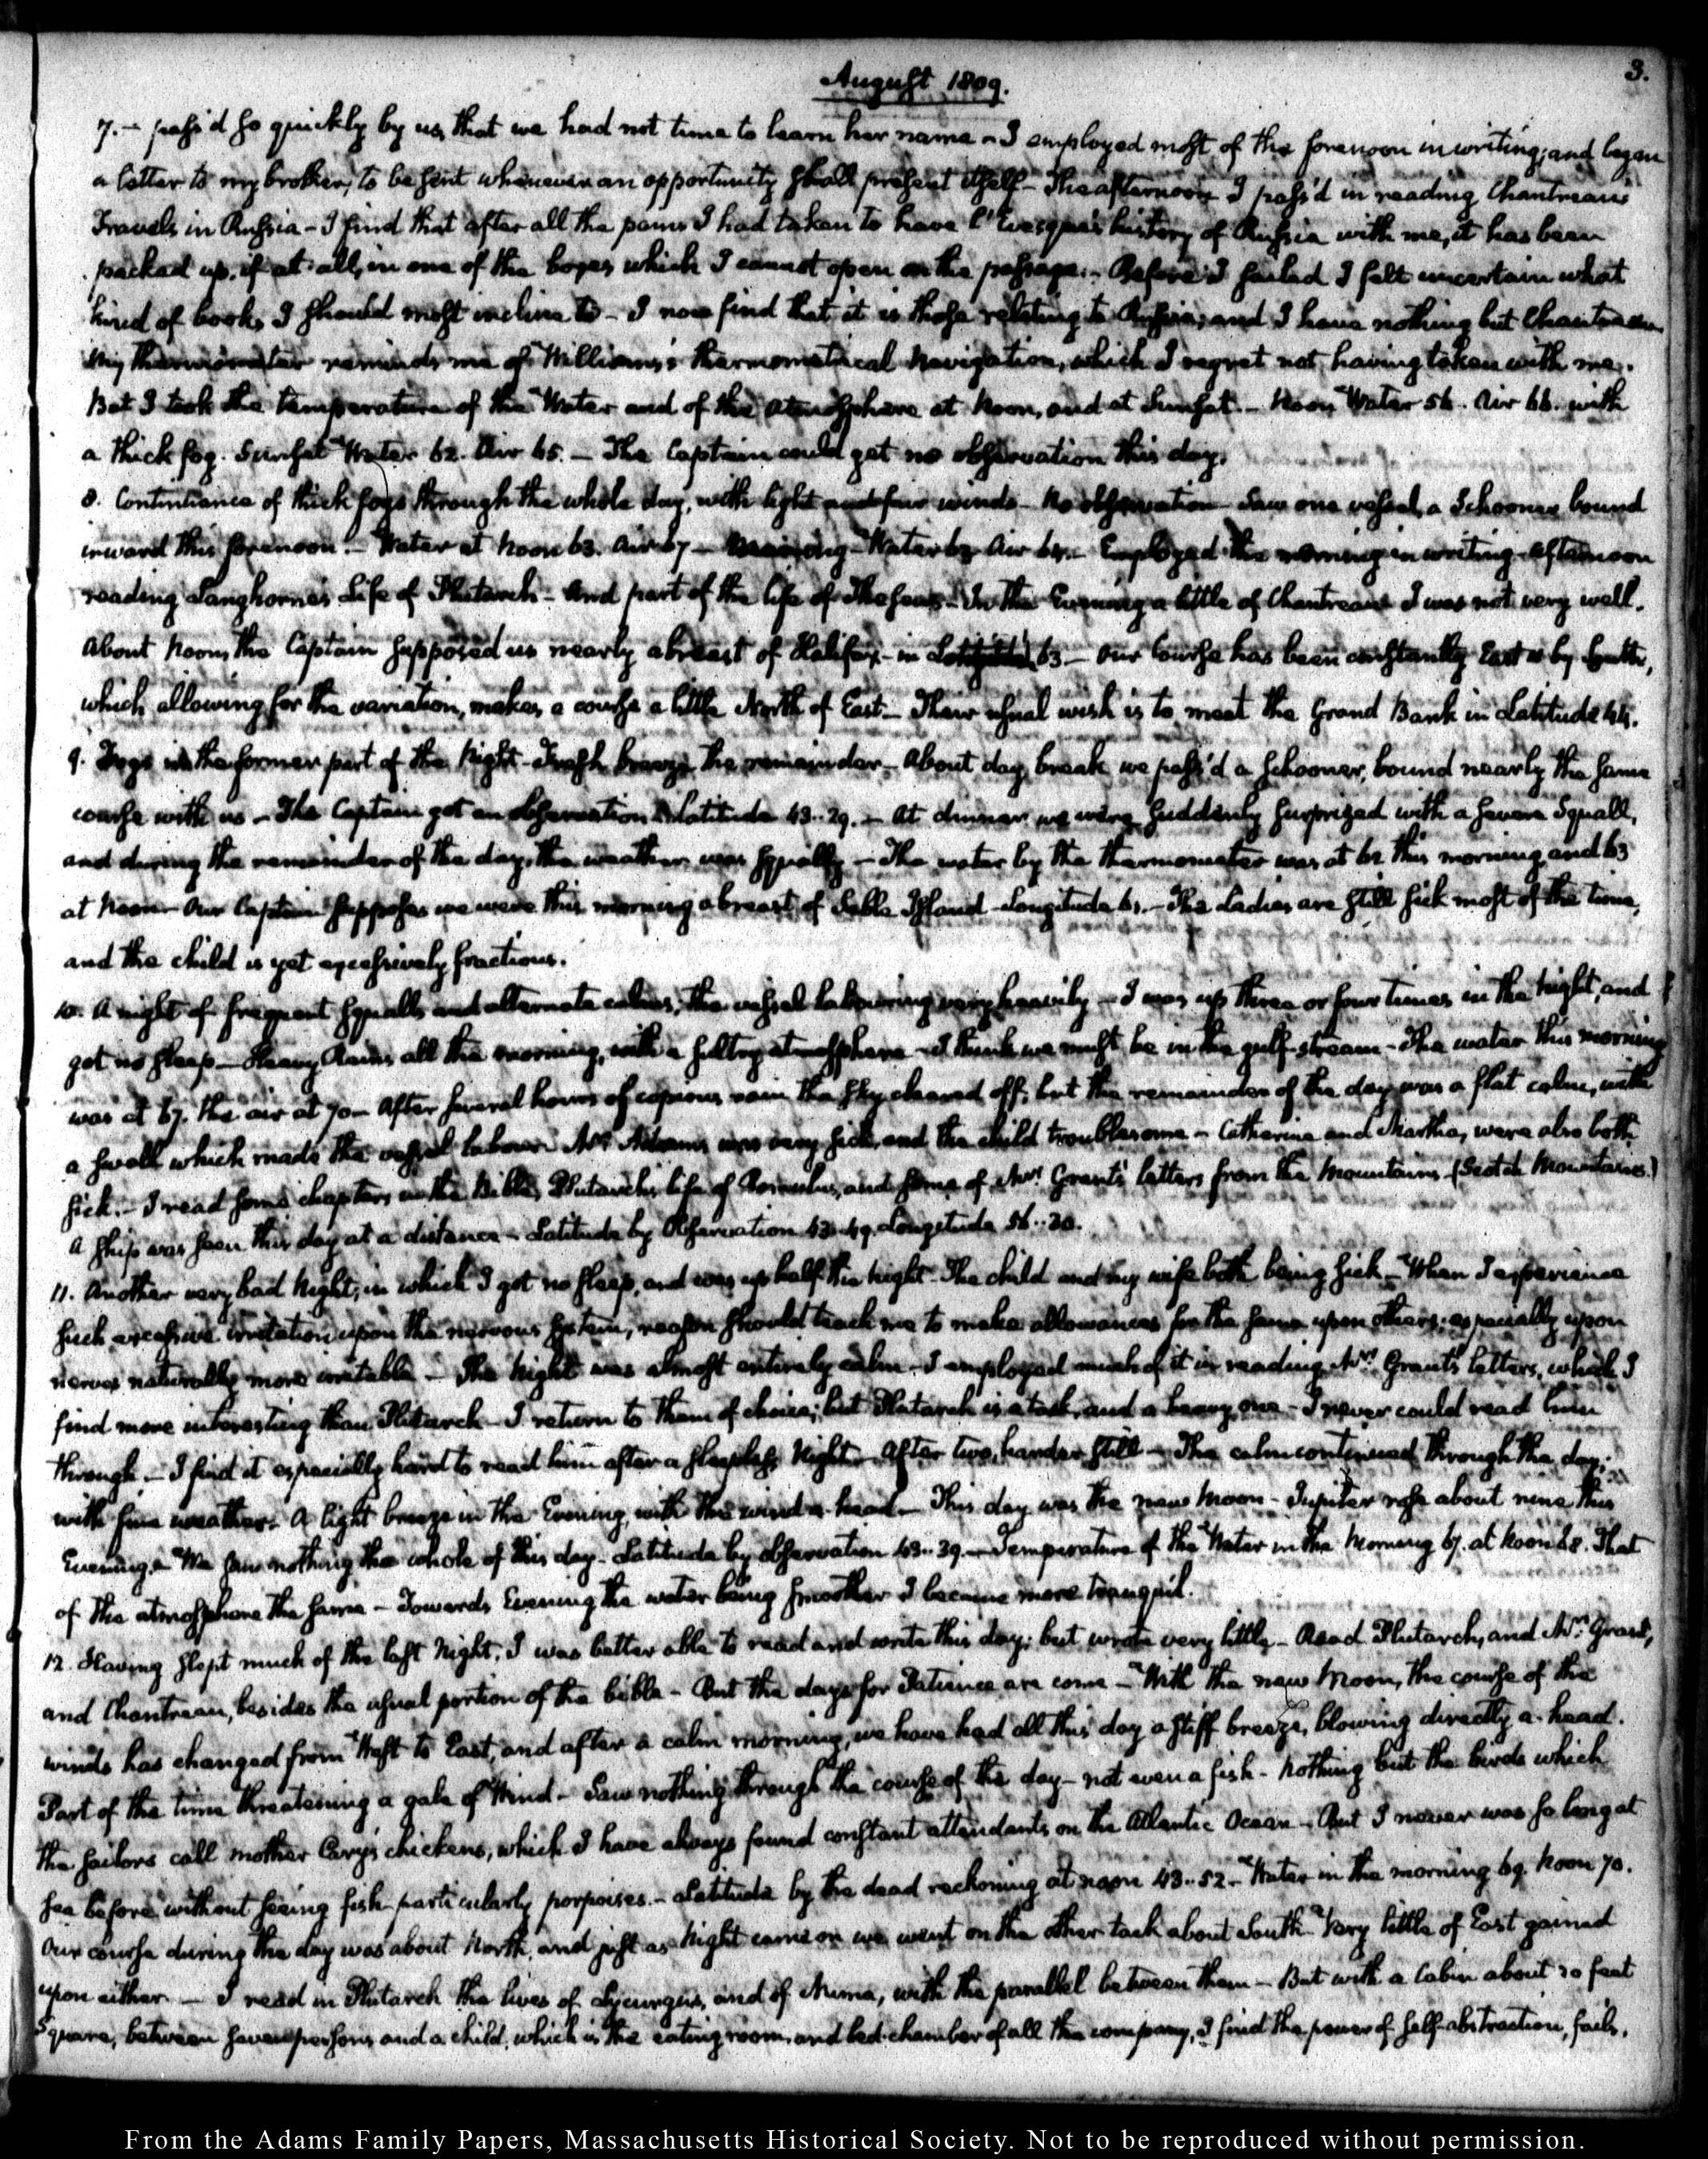 3.
August 1809.
7. — pass'd so quickly by us, that we had not time to learn her name — I employed most of the forenoon in writing; and began
a letter to my brother, to be sent whenever an opportunity shall present itself — The afternoon I pass'd in reading Chantreau's
Travels in Russia — I find that after all the pains I had taken to have l'Evesque's history of Russia with me, it has been
packed up, if at all, in one of the boxes which I cannot open on the passage. — Before I sailed I felt uncertain what
kind of books I should most incline to — I now find that it is those relating to Russia; and I have nothing but Chantreau.
My thermometer reminds me of Williams's thermometrical Navigation, which I regret not having taken with me.
But I took the temperature of the Water and of the atmosphere at Noon, and at Sunset. — Noon Water 56. Air 66. with
a thick fog. Sunset Water 62. Air 65. — The Captain could get no observation this day.
8. Continuance of thick fogs through the whole day, with light and fair winds — No observation — Saw one vessel, a Schooner bound
inward this forenoon. — Water at Noon 63. Air 67 — Water 63 Air 64. — Employed the morning in writing — afternoon
reading Langhorne's Life of Plutarch — And part of the life of Theseus — In the Evening a little of Chantreau. I was not very well.
About Noon, the Captain supposed us nearly abreast of Halifax — in 63 — Our Course has been constantly East by South,
which allowing for the variation, makes a course a little North of East — Their usual wish is to meet the Grand Bank in Latitude 44.
9. Fogs in the former part of the Night — Fresh breeze the remainder — About day break we pass'd a schooner, bound nearly the same
course with us — The Captain got an observation Latitude 43..29. — At dinner we were suddenly surprized with a severe Squall,
and during the remainder of the day, the weather was squally — The water by the thermometer was at 62 this morning and 63
at Noon — Our Captain supposes we were this morning abreast of Sable Island — Longitude 61. — The Ladies are still sick most of the time,
and the child is yet excessively fractious.
10. A night of frequent squalls and alternate calms, the vessel labouring very heavily — I was up three or four times in the Night, and
got no sleep — Heavy Rains all the morning, with a sultry atmosphere — I think we must be in the gulf-stream — The water this morning
was at 67. the air at 70 — After several hours of copious rain the sky cleared off; but the remainder of the day was a flat calm, with
a swell which made the vessel labour. Mrs. Adams was very sick, and the child troublesome — Catherine and Martha, were also both
sick. — I read some chapters in the Bible, Plutarch's life of Romulus, and some of Mrs. Grant's letters from the Mountains. (Scotch Mountains.)
A ship was seen this day at a distance — Latitude by Observation 43..49. Longitude 56..30.
11. Another very bad Night, in which I got no sleep, and was up half the Night — The child and my wife both being sick — When I experience
such excessive irritation upon the nervous System, reason should teach me to make allowances for the same upon others; especially upon
nerves naturally more irritable. — The Night was almost entirely calm — I employed much of it in reading Mrs. Grant's letters, which I
find more interesting than Plutarch — I return to them of choice; but Plutarch is a task, and a heavy one — I never could read him
through. — I find it especially hard to read him after a sleepless Night — After two, harder still — The calm continued through the day;
with fine weather. A light breeze in the Evening, with the wind a-head — This day was the new Moon — Jupiter rose about nine this
Evening. — We saw nothing the whole of this day — Latitude by observation 43..39. — Temperature of the Water in the Morning 67. at Noon 68. That
of the atmosphere the same — Towards Evening the water being smoother I became more tranquil.
12. Having slept much of the last Night, I was better able to read and write this day; but wrote very little — Read Plutarch, and Mrs. Grant,
and Chantreau, besides the usual portion of the bible — But the days for Patience are come — With the new Moon, the course of the
winds has changed from West to East, and after a calm morning, we have had all this day a stiff breeze, blowing directly a-head.
Part of the time threatening a gale of Wind — Saw nothing through the course of the day — not even a fish — Nothing but the birds which
the sailors call mother Cary's chickens, which I have always found constant attendants on the Atlantic Ocean — But I never was so long at
sea before without seeing fish particularly porpoises. — Latitude by the dead reckoning at noon 43..52 — Water in the morning 69. Noon 70.
Our course during the day was about North, and just as Night came on we went on the other tack about South — Very little of East gained
upon either — I read in Plutarch the lives of Lycurgus, and of Numa, with the parallel between them — But with a Cabin about 10 feet
Square, between seven persons and a child, which is the eating room, and bed-chamber of all the company, I find the power of self-abstraction, fails.
From the Adams Family Papers, Massachusetts Historical Society. Not to be reproduced without permission.